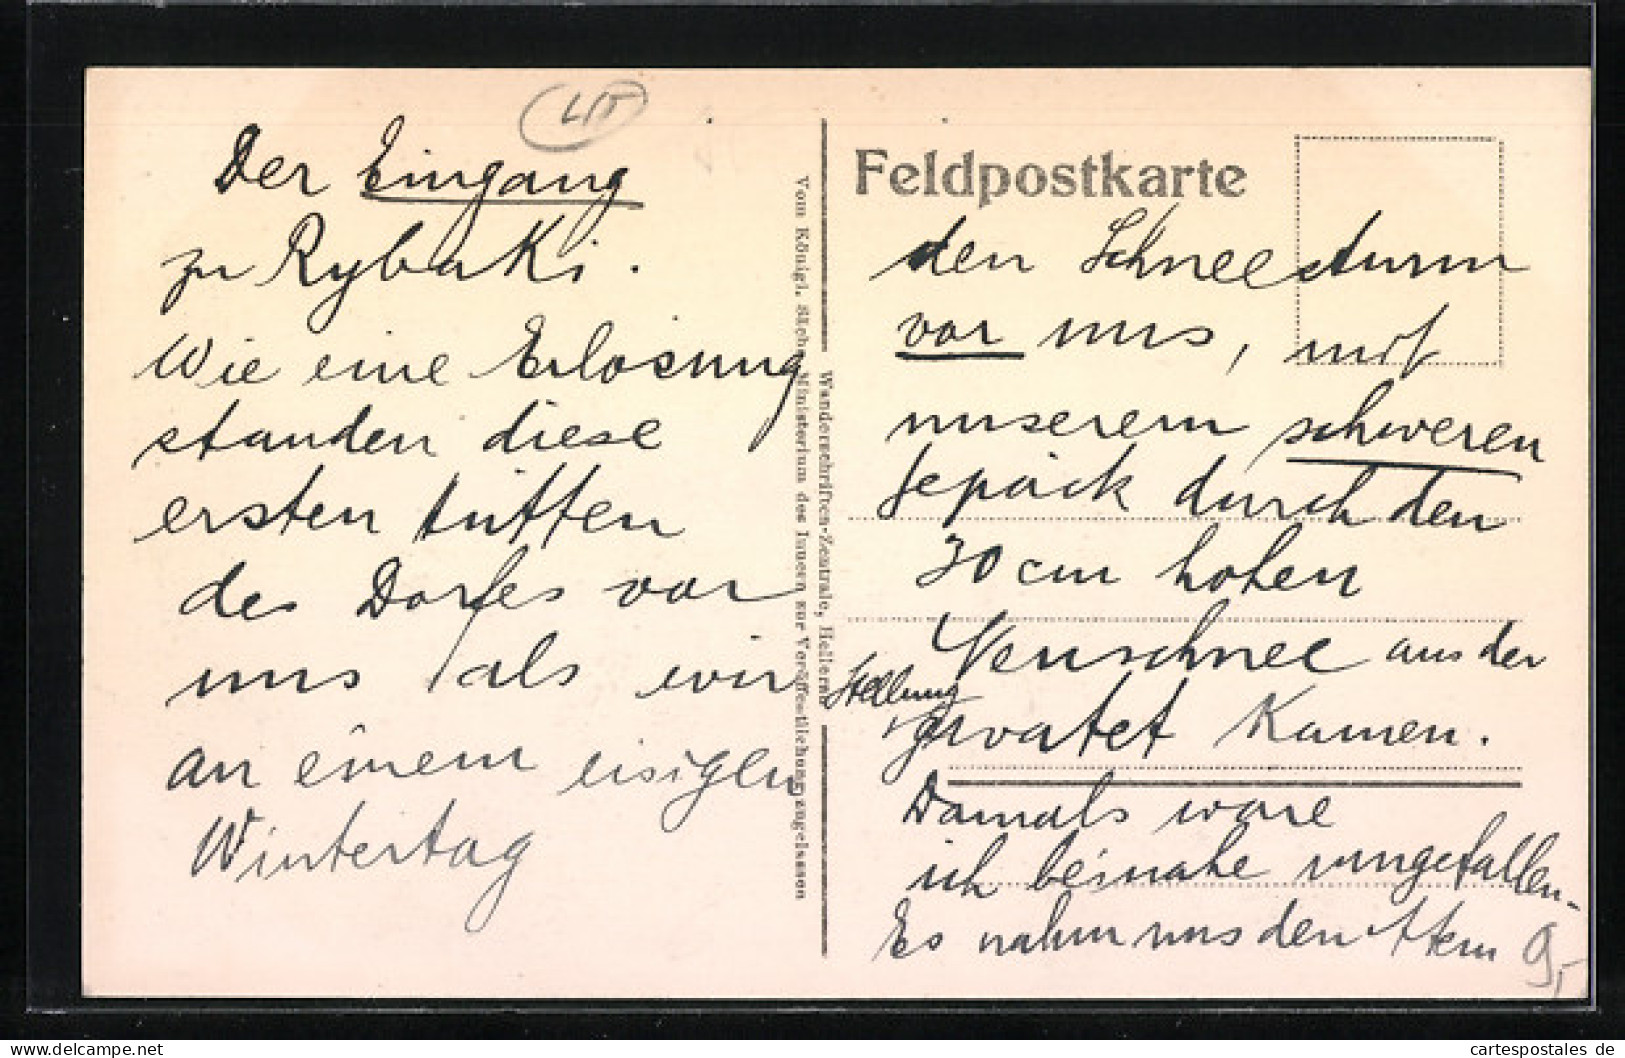 LIT
Der Eingang
zu Rybaki.
Wie eine Erlösung
standen diese
ersten Hütten
des Dorfes vor
uns als wir
an einem eisigen
Wintertag
Vom Königl. Sächs. Ministerium des Innern zur Veröffentlichung zugelassen
Wanderschriften-Zentrale, Hellerau
Feldpostkarte
den Schneesturm
vor uns, mit
unserem schweren
Gepäck durch den
30 cm hohen
Neuschnee aus der
Stellung
gewatet kamen.
Damals wäre
ich beinahe umgefallen-
Es nahm uns den Atem
9,-
cartespostales de